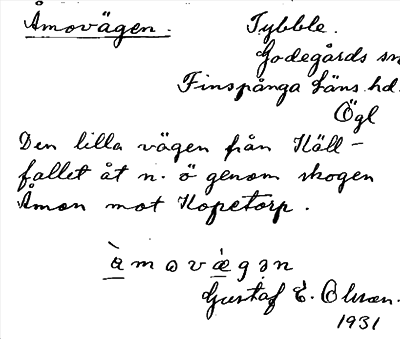 Åmovägen.
Tybble.
Godegårds sn
Finspånga läns hd.
Ögl
Den lilla vägen från Häll-
fallet åt n. ö genom skogen
Åmon mot Kopetorp.
àmovæ̀gən
Gustaf E. Olsson.
1931